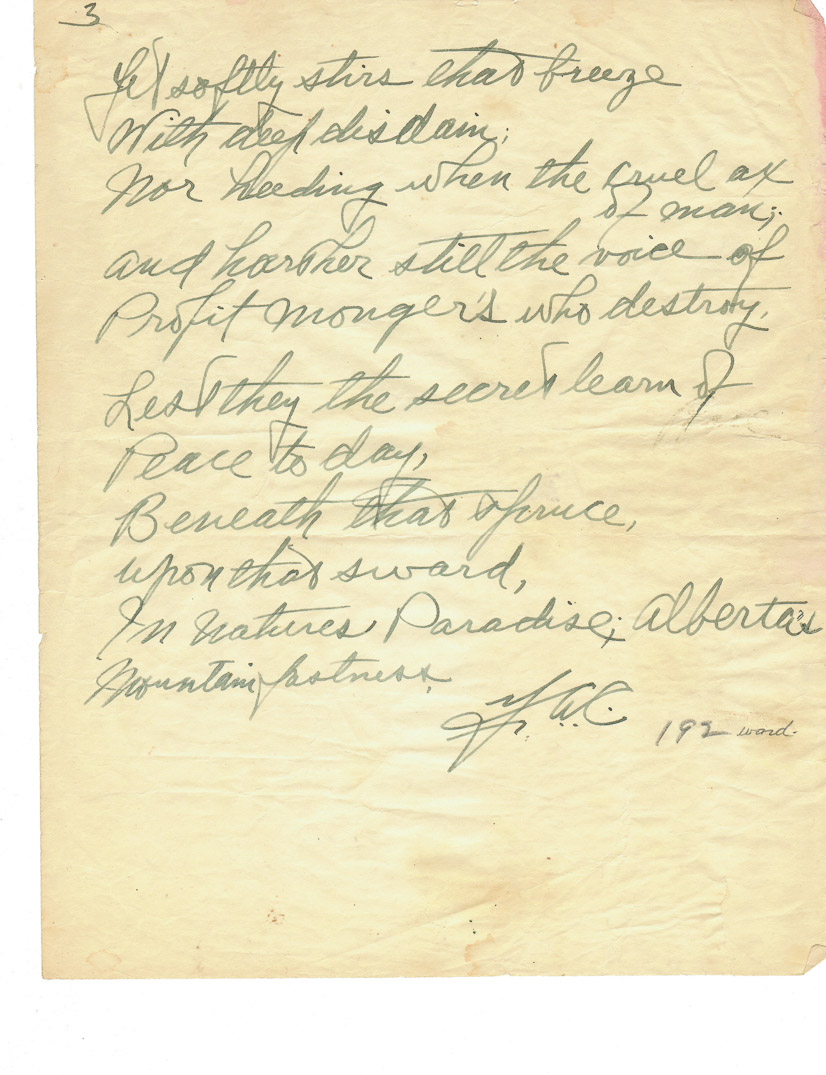 3
Yet softly stirs that breeze
With deep disdain;
Nor heeding when the cruel ax
of man;
and harsher still the voice of
Profit Monger's who destroy,
Lest they the secret learn of
Peace to day,
Beneath that spruce,
upon that sward,
In Natures Paradise; Alberta's
Mountain fastness.
192 word.